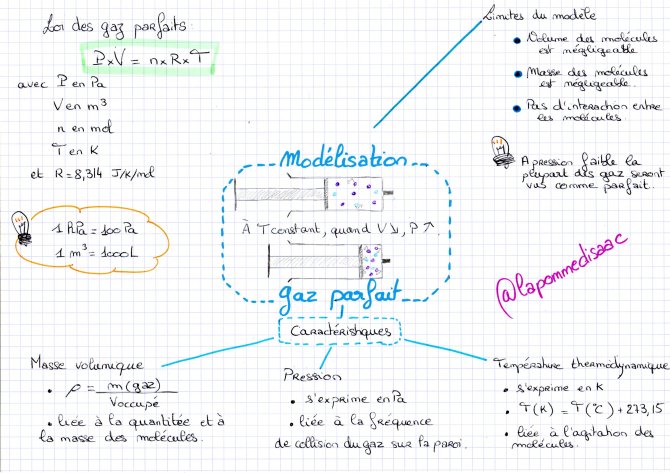 Loi des gaz parfaits:
P×V = n×R×T
avec P en Pa
V en m³
n en mol
T en K
et R = 8,314 J/K/mol
1 hPa = 100 Pa
1 m³ = 1000L
Limites du modèle
• Volume des molécules
est négligeable
• Masse des molécules
est négligeable.
• Pas d'interaction entre
les molécules.
A pression faible la
plupart des gaz seront
vus comme parfait.
Modélisation
À T constant, quand V ↘, P ↗.
gaz parfait
@lapommedisaac
Caractéristiques
Masse volumique
• ρ = m(gaz)
Voccupé
• liée à la quantitée et à
la masse des molécules.
Pression
• s'exprime en Pa
• liée à la fréquence
de collision du gaz sur la paroi.
Température thermodynamique
• s'exprime en K
• T(K) = T(°C) + 273,15
• liée à l'agitation des
molécules.